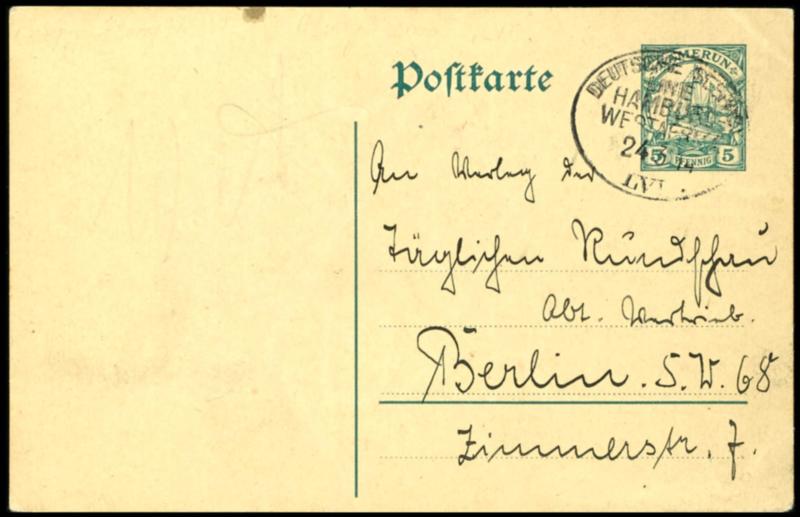 Postkarte
KAMERUN
5 PFENNIG 5
DEUTSCHE SEEPOST
LINIE
HAMBURG
WESTAFRIKA
24 14
LVI.
An Verlag der
Täglichen Rundschau
Abt. Vertrieb.
Berlin. S.W. 68
Zimmerstr. 7.